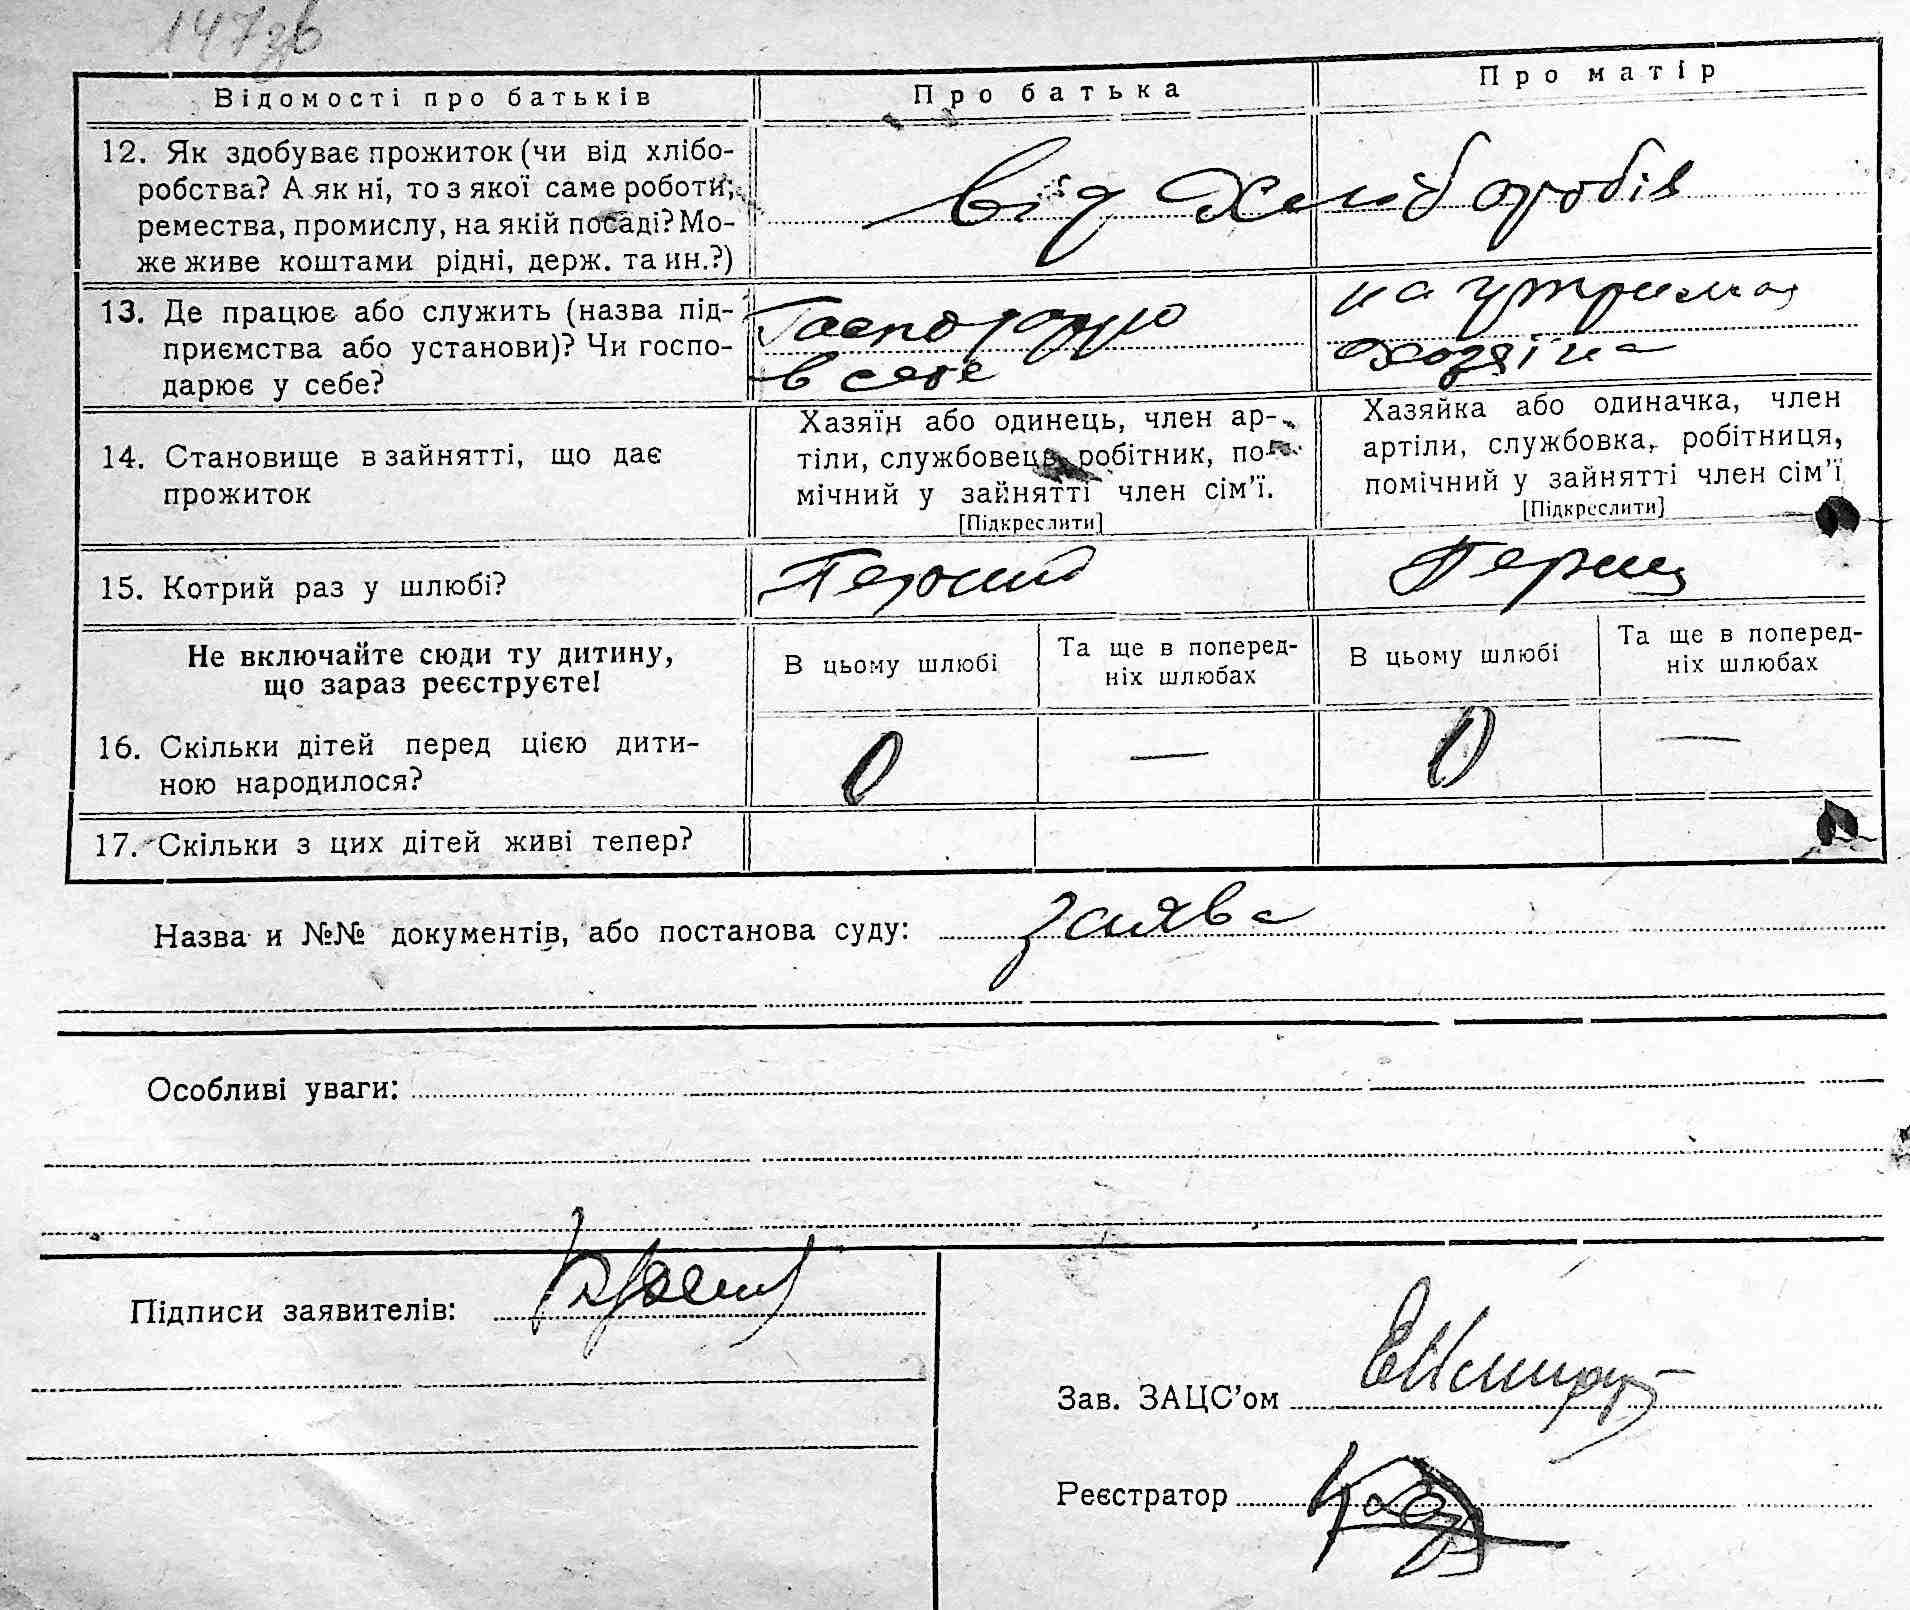 147зв
Відомості про батьків
Про батька
Про матір
12. Як здобуває прожиток (чи від хлібо-
робства? А як ні, то з якої саме роботи,
ремества, промислу, на якій посаді? Мо-
же живе коштами рідні, держ. та ин.?)
від хліборобів
13. Де працює або служить (назва під-
приємства або установи)? Чи госпо-
дарює у себе?
Господарує
в себе
на утрима
хозяіна
14. Становище в зайнятті, що дає
прожиток
Хазяїн або одинець, член ар-
тіли, службовець, робітник, по-
мічний у зайнятті член сім'ї.
[Підкреслити]
Хазяйка або одиначка, член
артіли, службовка, робітниця,
помічний у зайнятті член сім'ї
[Підкреслити]
15. Котрий раз у шлюбі?
Перший
Перший
Не включайте сюди ту дитину,
що зараз реєструєте!
В цьому шлюбі
Та ще в поперед-
ніх шлюбах
В цьому шлюбі
Та ще в поперед-
ніх шлюбах
16. Скільки дітей перед цією дити-
ною народилося?
0
—
0
—
17. Скільки з цих дітей живі тепер?
Назва и №№ документів, або постанова суду: заява
Особливі уваги:
Підписи заявителів:
Зав. ЗАЦС'ом
Реєстратор